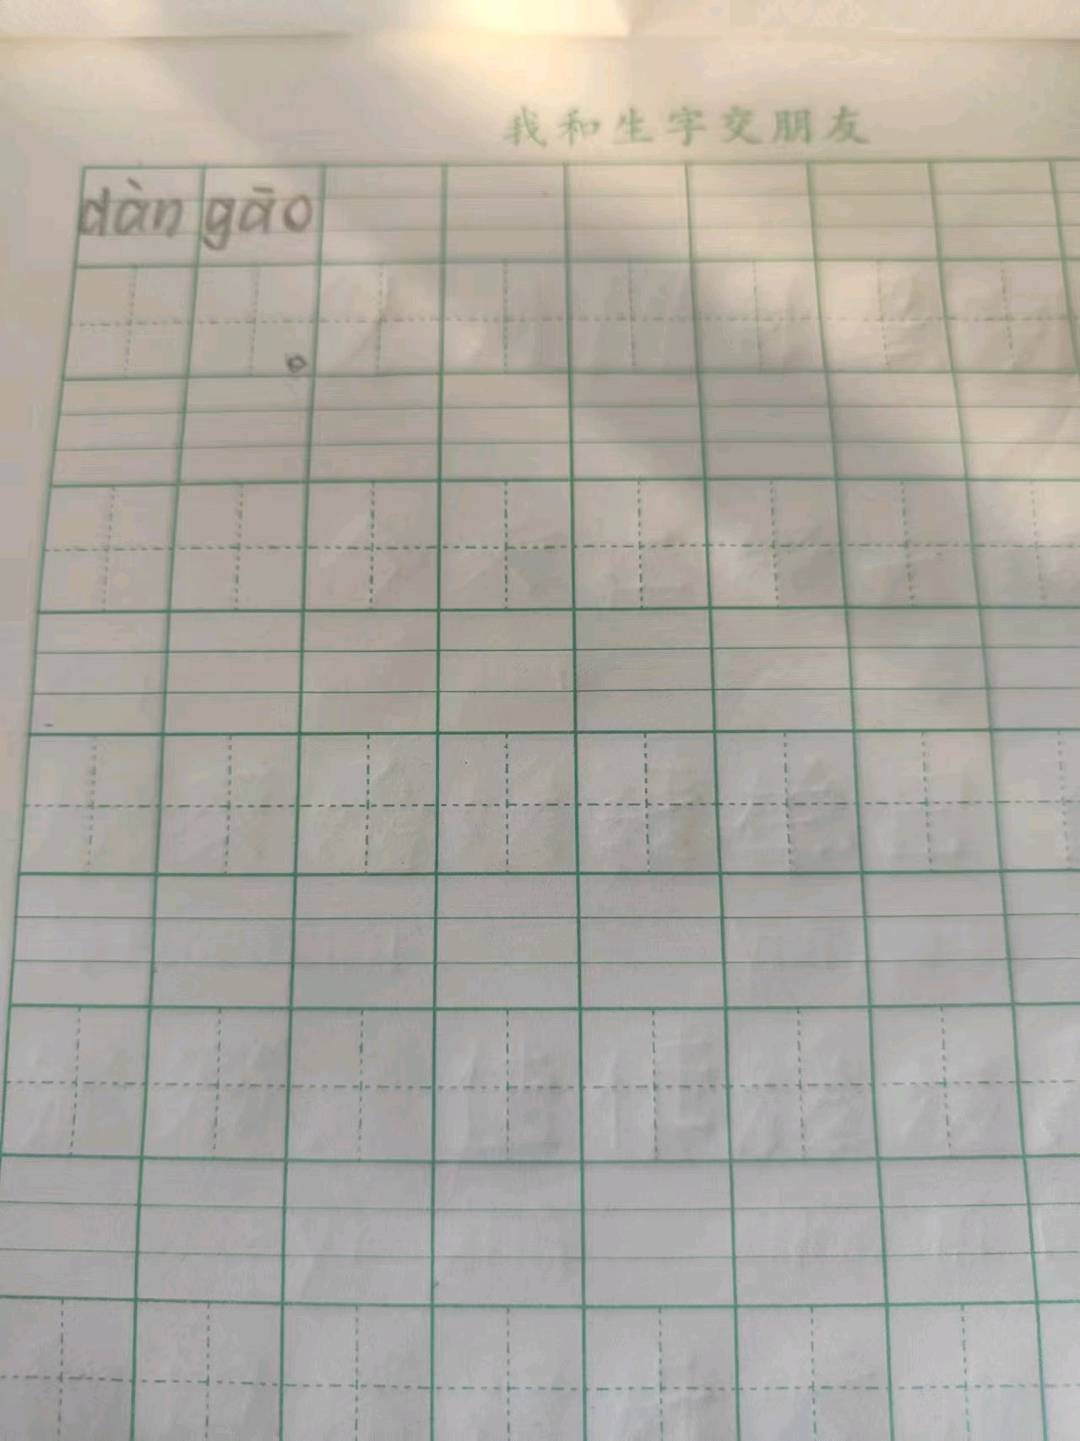 我和生字交朋友
dàn gāo
。